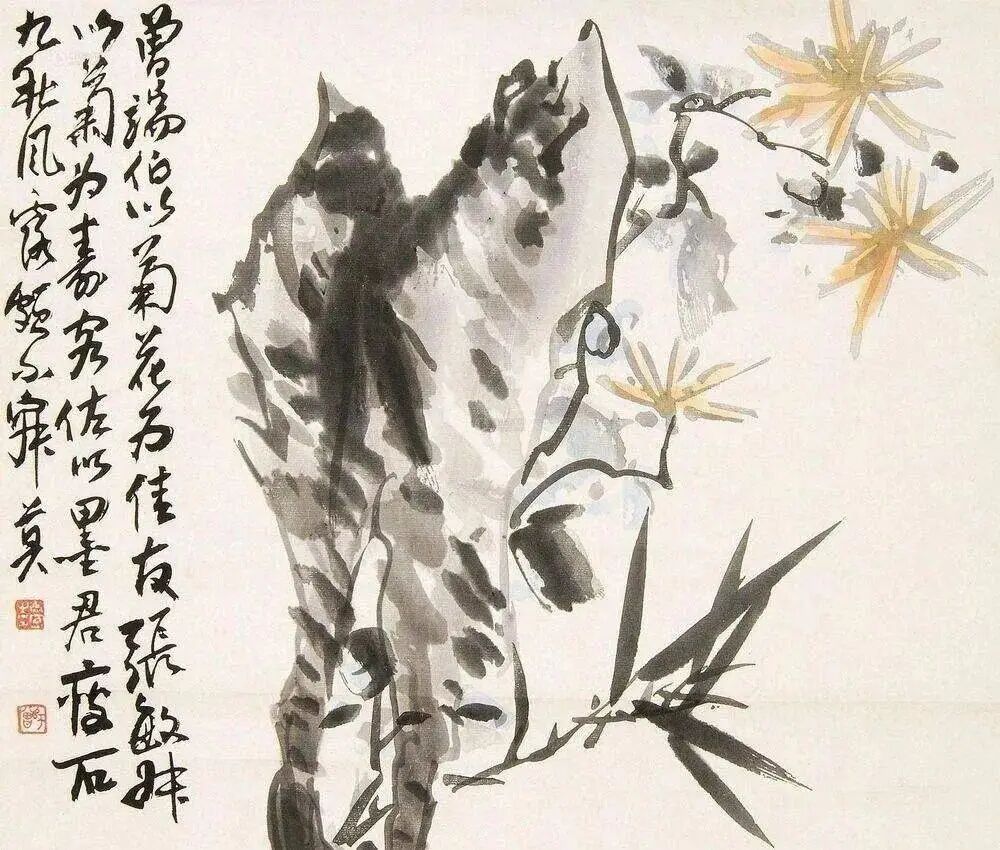 曾端伯以菊花为佳友張敏叔
以菊为寿客佐以墨君瘦石
九秋风露頗不寂莫